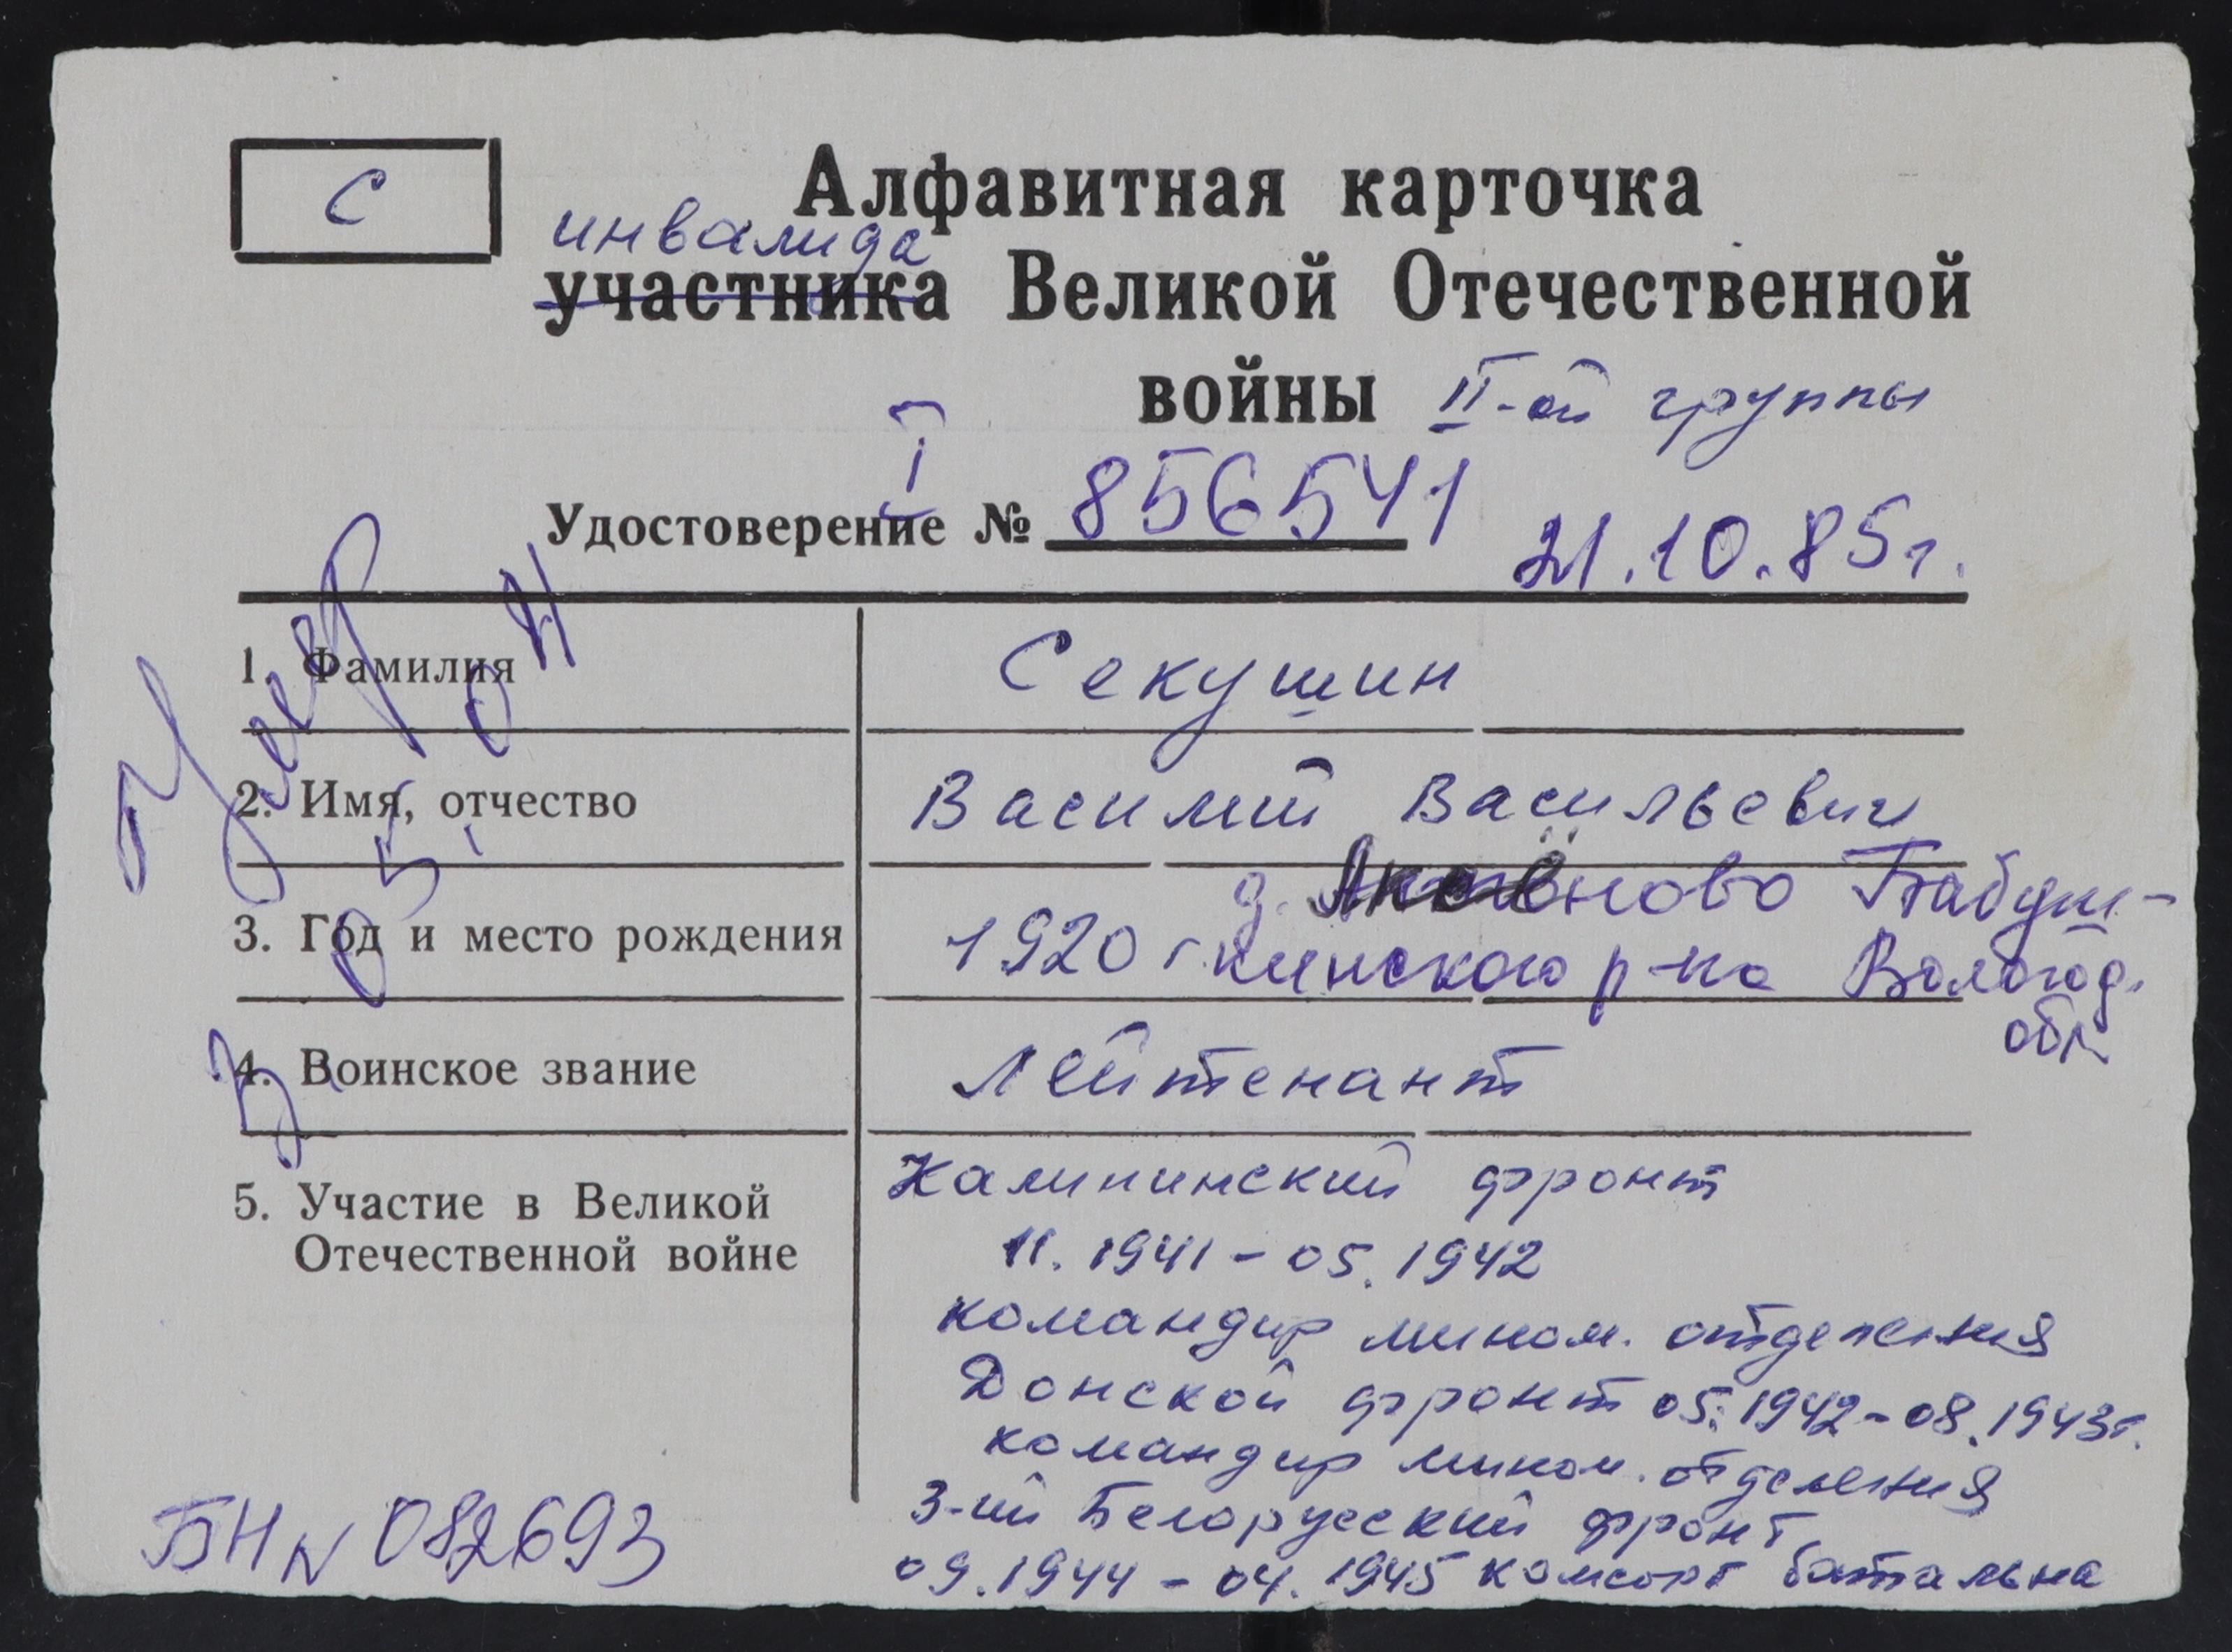 С
Алфавитная карточка
инвалида
участника Великой Отечественной
войны II-ой группы
I
Удостоверение № 856541 21.10.85г.
1. Фамилия Секушин
2. Имя, отчество Василий Васильевич
д. Бабуш-
3. Год и место рождения 1920 г. кинского р-на Вологод.
обл
4. Воинское звание Лейтенант
5. Участие в Великой
Отечественной войне
Калининский фронт
11.1941-05.1942
командир мином. отделения
Донской фронт 05.1942-08.1943г.
командир мином. отделения
3-ий Белорусский фронт
09.1944-04.1945 комсорг батальна
Умер
БН N 082693